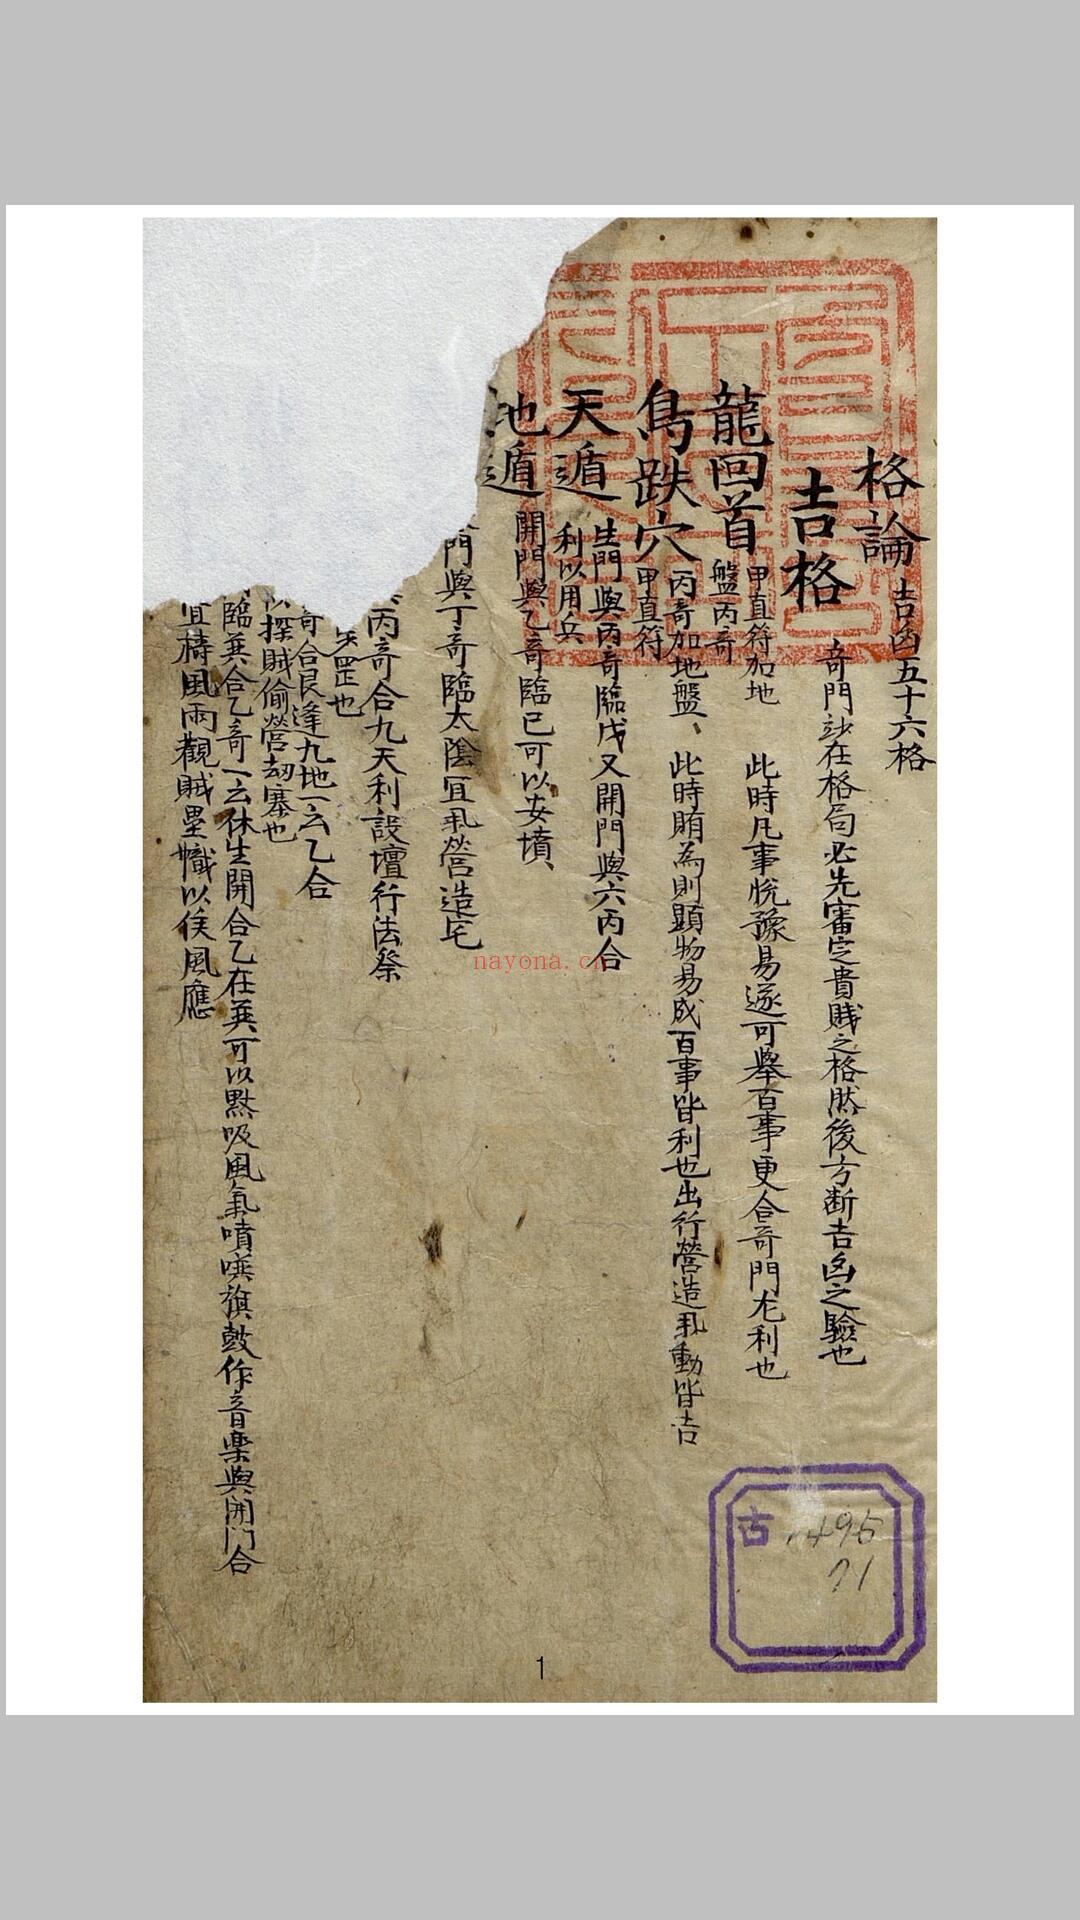 格論 吉凶五十六格
吉格 奇門玅在格局必先審定貴賤之格然後方断吉凶之驗也
龍回首 甲直符加地
盤丙奇 此時凡事悅豫易遂可舉百事更合奇門尤利也
鳥跌穴 丙奇加地盤、
甲直符 此時賄為則顯物易成百事皆利也出行營造軋動皆吉
天遁 生門與丙奇臨戊又開門與六丙合
利以用兵
地遁 開門與乙奇臨已可以安墳、
門與丁奇臨太陰宜軋營造宅
丙奇合九天利設壇行法祭
罡也
奇合艮逢九地一云乙合
探賊偷營刼寨也
臨㢲合乙奇一云休生開合乙在㢲可以㸃吸風氣噴噗旗鼓作音樂與開門合
宜禱風雨觀賊壘幟以候風應
古 495
71
nayona.cn
1